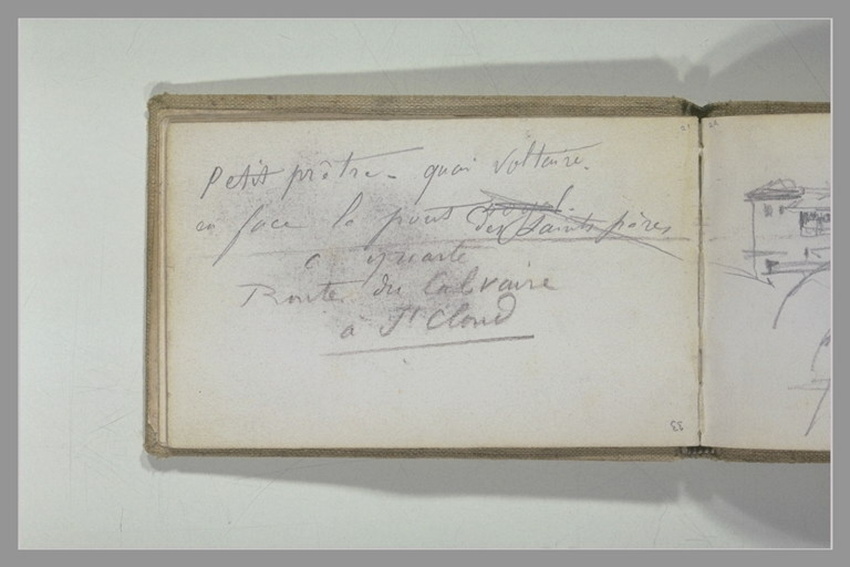 Petit prêtre - quai Voltaire.
en face le pont royal.
des Saints pères
Route du Calvaire
à St Cloud
33